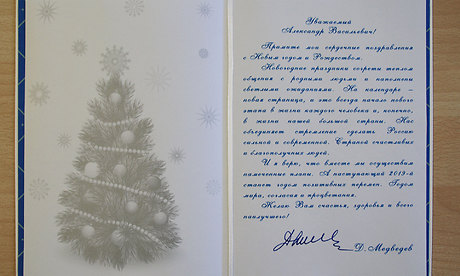 Уважаемый
Александр Васильевич!
Примите мои сердечные поздравления
с Новым годом и Рождеством.
Новогодние праздники согреты теплом
общения с родными людьми и наполнены
светлыми ожиданиями. На календаре –
новая страница, и это всегда начало нового
этапа в жизни каждого человека и, конечно,
в жизни нашей большой страны. Нас
объединяет стремление сделать Россию
сильной и современной. Страной счастливых
и благополучных людей.
И я верю, что вместе мы осуществим
намеченные планы. А наступающий 2013-й
станет годом позитивных перемен. Годом
мира, согласия и процветания.
Желаю Вам счастья, здоровья и всего
наилучшего!
Д. Медведев